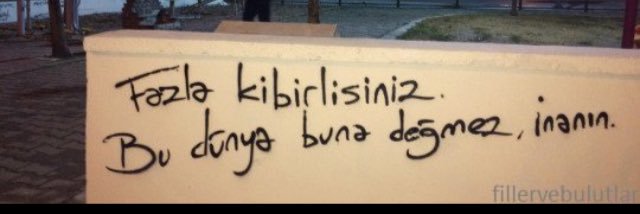 Fazla kibirlisiniz.
Bu dünya buna değmez, inanın.
fillervebulutlar